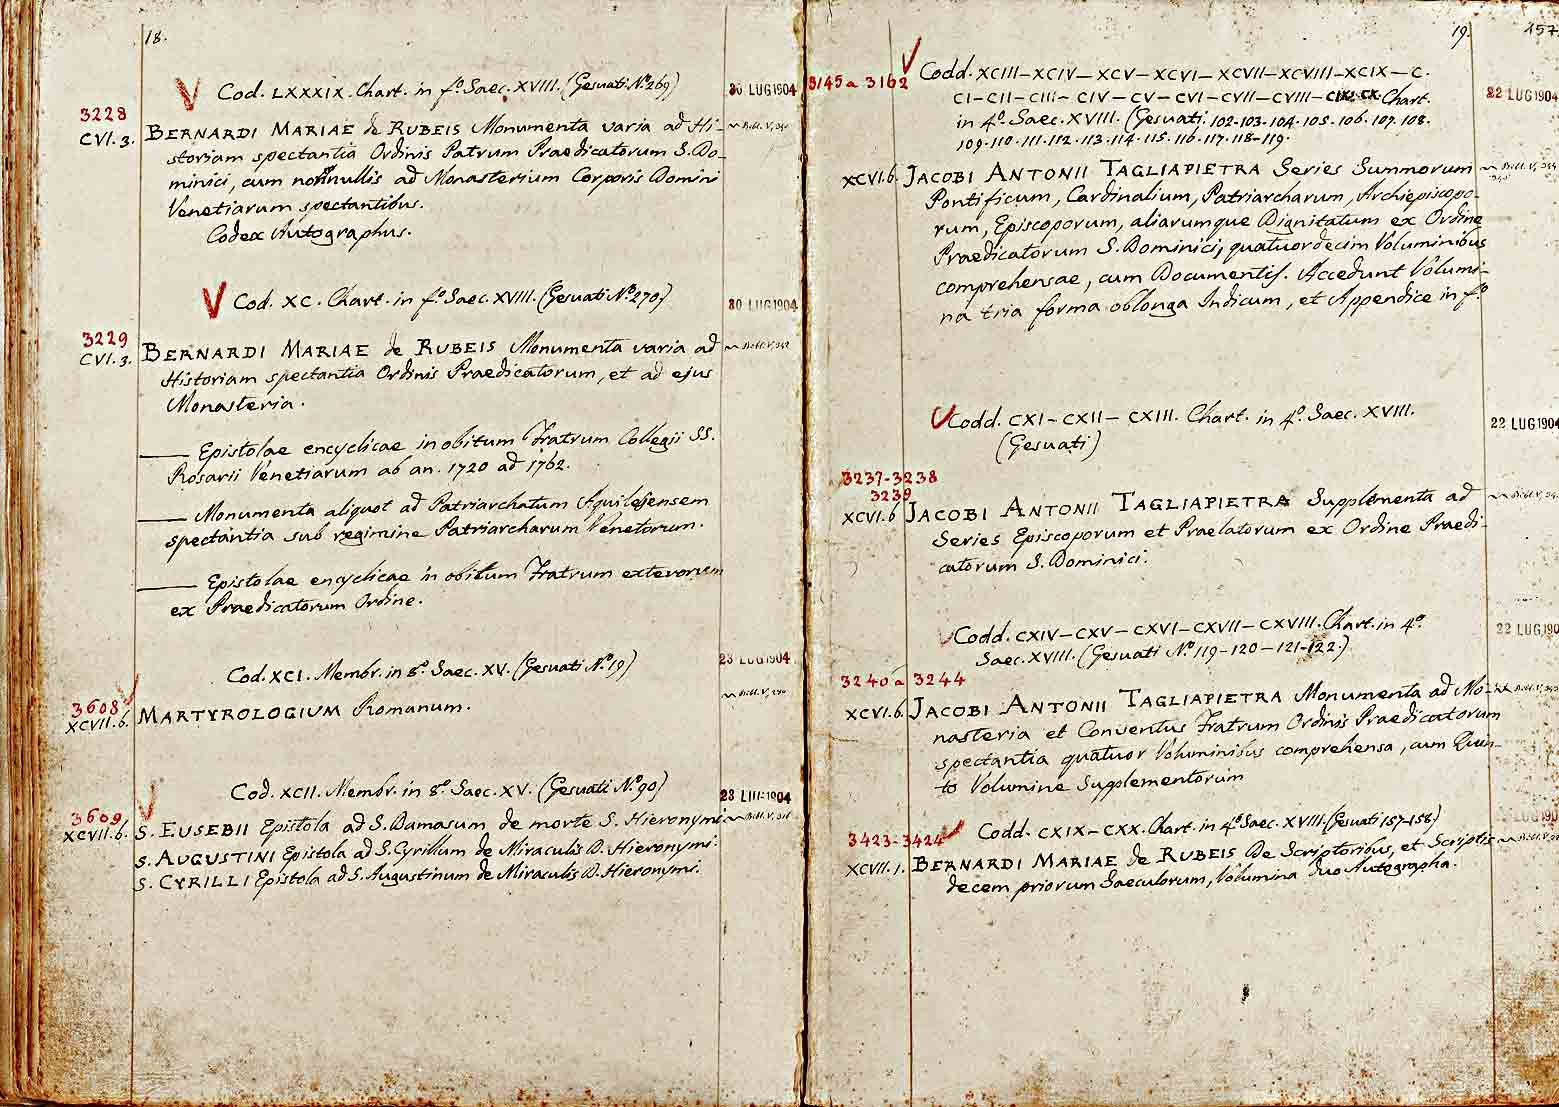 18.
Cod. LXXXIX. Chart. in fº. Saec. XVIII. (Gesuati Nº. 269)
30 LUG 1904
3228
CVI. 3.
BERNARDI MARIAE de RUBEIS Monumenta varia ad Hi-
storiam spectantia Ordinis Patrum Praedicatorum S. Do-
minici, cum nonnullis ad Monasterium Corporis Domini
Venetiarum spectantibus.
Codex Autographus.
Cod. XC. Chart. in fº. Saec. XVIII. (Gesuati Nº. 270.)
30 LUG 1904
3229
CVI. 3.
BERNARDI MARIAE de RUBEIS Monumenta varia ad
Historiam spectantia Ordinis Praedicatorum, et ad ejus
Monasteria.
—— Epistolae encyclicae in obitum Fratrum Collegii SS.
Rosarii Venetiarum ab an. 1720 ad 1762.
—— Monumenta aliquot ad Patriarchatum Aquilejensem
spectantia sub regimine Patriarcharum Venetorum.
—— Epistolae encyclicae in obitum Fratrum exterorum
ex Praedicatorum Ordine.
Cod. XCI. Membr. in 8º. Saec. XV. (Gesuati Nº. 19)
23 LUG 1904
3608
XCVII. 6.
MARTYROLOGIUM Romanum.
Cod. XCII. Membr. in 8º. Saec. XV. (Gesuati Nº. 90)
23 LUG 1904
3609
XCVII. 6.
S. EUSEBII Epistola ad S. Damasum de morte S. Hieronymi.
S. AUGUSTINI Epistola ad S. Cyrillum de Miraculis D. Hieronymi.
S. CYRILLI Epistola ad S. Augustinum de Miraculis D. Hieronymi.
19.
157
3145 a 3162
Codd. XCIII – XCIV – XCV – XCVI – XCVII – XCVIII – XCIX – C.
22 LUG 1904
CI – CII – CIII – CIV – CV – CVI – CVII – CVIII – CIX. CX. Chart.
in 4º. Saec. XVIII. (Gesuati. 102. 103. 104. 105. 106. 107. 108.
109. 110. 111. 112. 113. 114. 115. 116. 117. 118 - 119.
XCVI. 6.
JACOBI ANTONII TAGLIAPIETRA Series Summorum
Pontificum, Cardinalium, Patriarcharum, Archiepiscopo-
rum, Episcoporum, aliarumque Dignitatum ex Ordine
Praedicatorum S. Dominici, quatuordecim Voluminibus
comprehensae, cum Documentis. Accedunt Volumi-
na tria forma oblonga Indicum, et Appendice in fº.
Codd. CXI – CXII – CXIII. Chart. in 4º. Saec. XVIII.
(Gesuati)
22 LUG 1904
3237-3238
3239
XCVI. 6
JACOBI ANTONII TAGLIAPIETRA Supplementa ad
Series Episcoporum et Praelatorum ex Ordine Praedi-
catorum S. Dominici.
Codd. CXIV – CXV – CXVI – CXVII – CXVIII. Chart. in 4º.
Saec. XVIII. (Gesuati Nº. 119 – 120 – 121 – 122.)
22 LUG 190
3240 a 3244
XCVI. 6.
JACOBI ANTONII TAGLIAPIETRA Monumenta ad Mo-
nasteria et Conventus Fratrum Ordinis Praedicatorum
spectantia quatuor Voluminibus comprehensa, cum Quin-
to Volumine Supplementorum
Codd. CXIX – CXX. Chart. in 4º. Saec. XVIII. (Gesuati 157-158)
3423-3424
XCVII. 1.
BERNARDI MARIAE de RUBEIS De Scriptoribus, et Scriptis
decem priorum Saeculorum, Volumina duo Autographa.